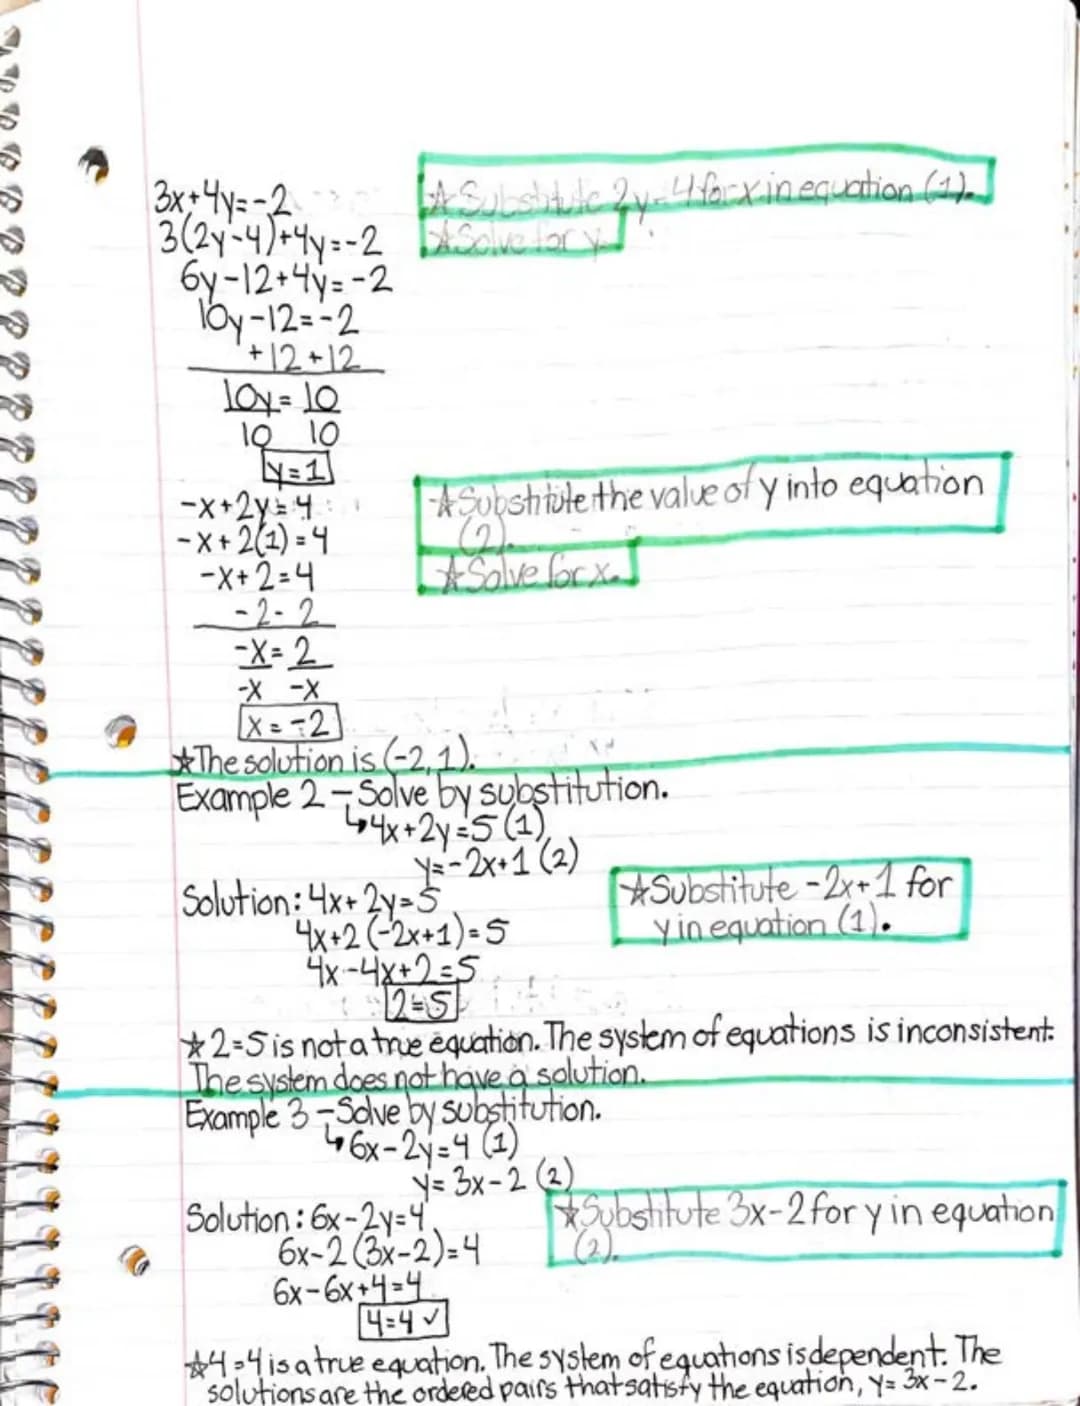 3x+4y=-2
★Substitute 2y-4 for x in equation (1).
3(2y-4)+4y=-2
★Solve for y.
6y-12+4y=-2
10y-12=-2
+12 +12
10y= 10
10 10
y=1
-x+2y=4
★Substitute the value of y into equation
(2).
-x+2(1)=4
★Solve for x.
-x+2=4
-2-2
-x=2
-x -x
x=-2
★The solution is (-2,1).
Example 2-Solve by substitution.
↳4x+2y=5 (1)
y=-2x+1 (2)
Solution: 4x+2y=5
★Substitute -2x+1 for
y in equation (1).
4x+2(-2x+1)=5
4x-4x+2=5
2=5
★2=5 is not a true equation. The system of equations is inconsistent.
The system does not have a solution.
Example 3-Solve by substitution.
↳6x-2y=4 (1)
y=3x-2 (2)
Solution: 6x-2y=4
★Substitute 3x-2 for y in equation
(2).
6x-2(3x-2)=4
6x-6x+4=4
4=4 ✓
★4=4 is a true equation. The system of equations is dependent. The
solutions are the ordered pairs that satisfy the equation, y=3x-2.